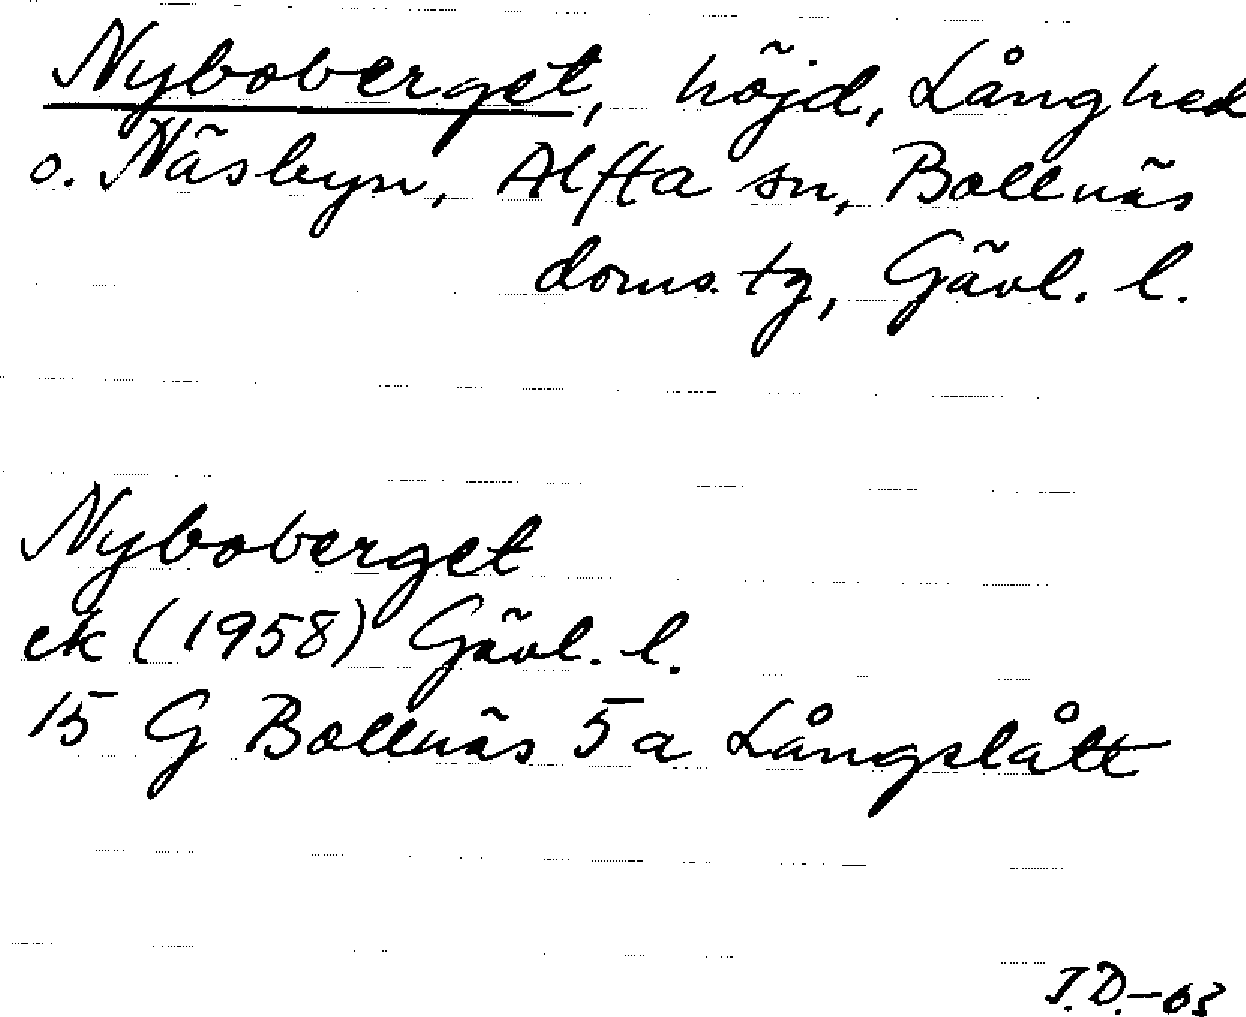 Nyboberget, höjd, Långhed
o. Näsbyn, Alfta sn, Bollnäs
doms. tg, Gävl. l.
Nyboberget
ek (1958) Gävl. l.
15 G Bollnäs 5a Långslått
I.D.-63